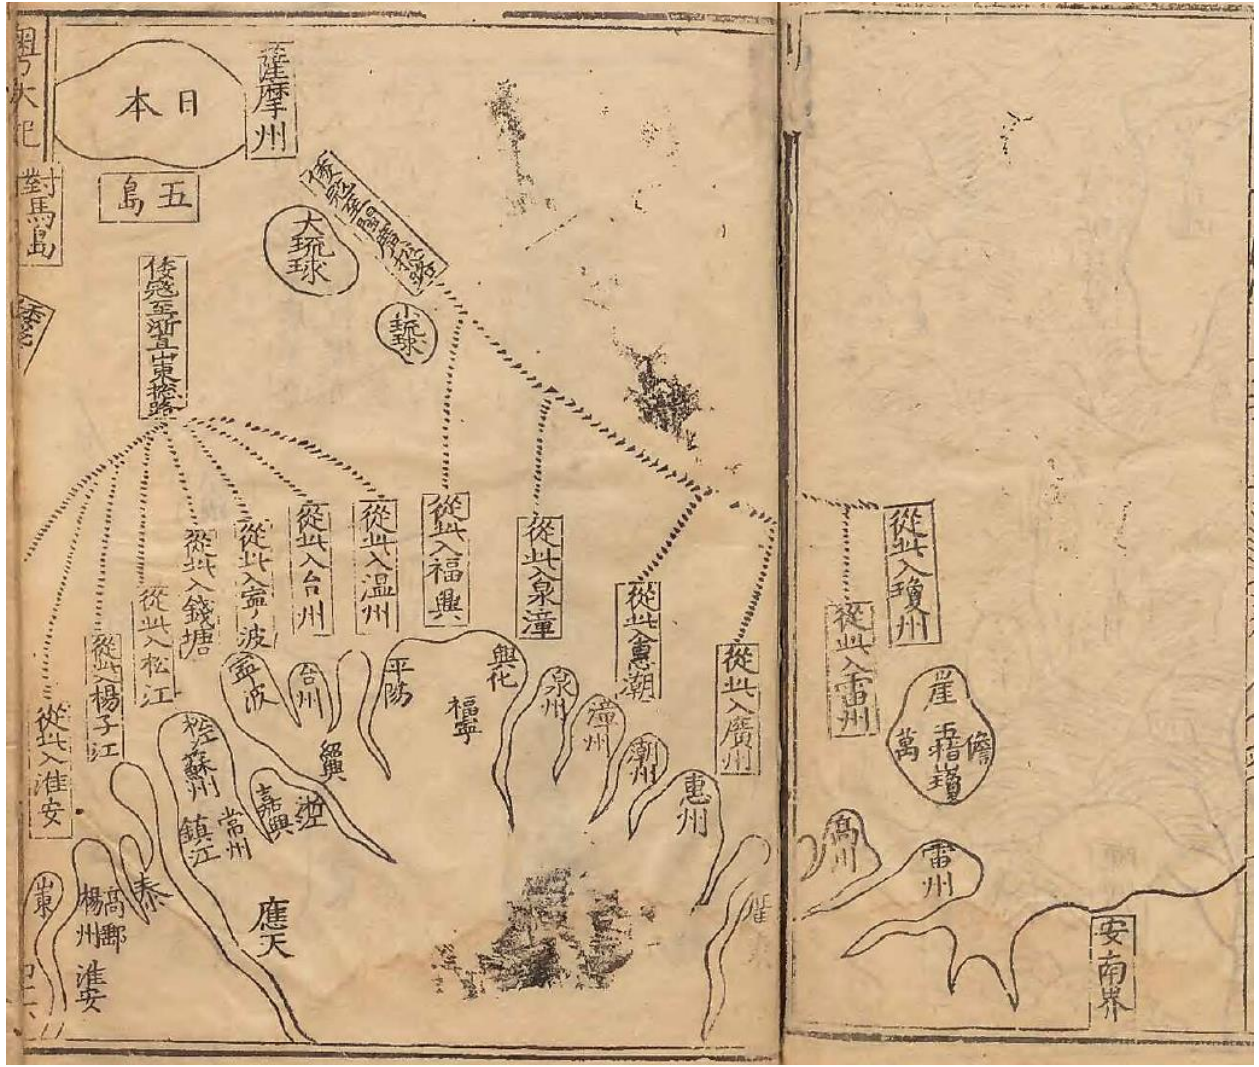 粵大記
日本
薩摩州
對馬島
五島
大琉球
小琉球
倭寇至閩廣總路
倭寇至浙直山東總路
從此入瓊州
從此入雷州
從此入廣州
從此入惠潮
從此入泉漳
從此入福興
從此入溫州
從此入台州
從此入寧波
從此入錢塘
從此入松江
從此入楊子江
從此入淮安
崖
儋
萬
瓊
安南界
雷州
高州
惠州
潮州
漳州
泉州
興化
福寧
平陽
台州
寧波
紹興
浙江
嘉興
松江
蘇州
常州
鎮江
應天
泰
高郵
楊州
淮安
山東